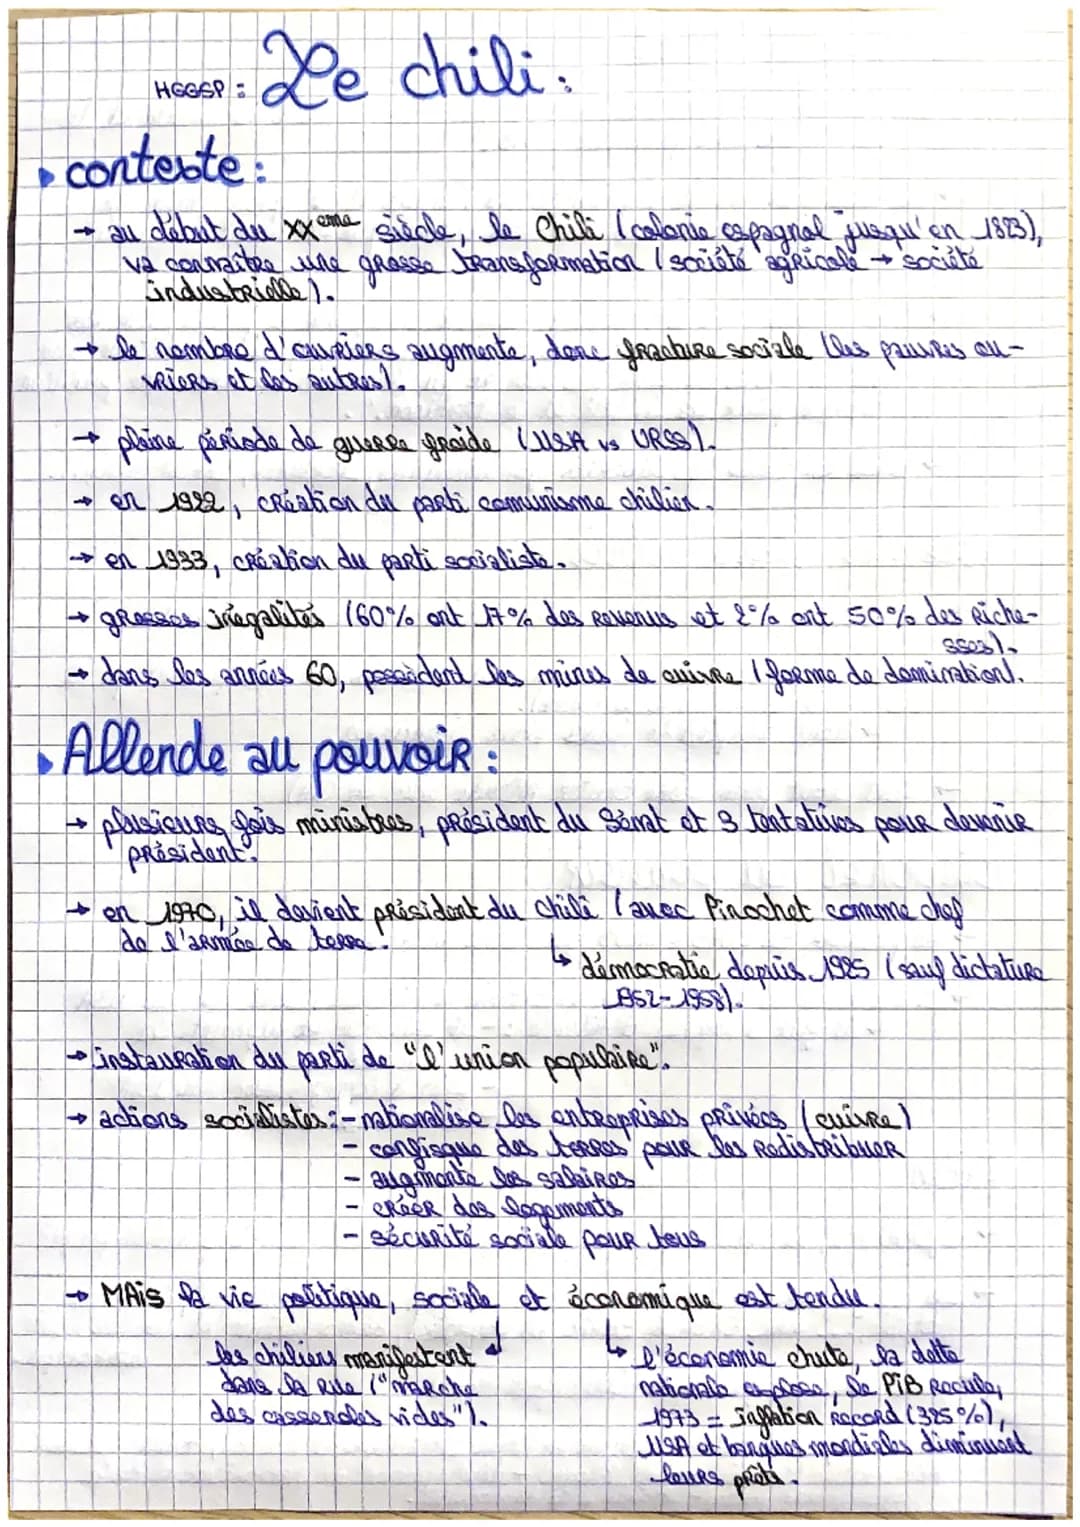 HGGSP : Le chili :
contexte :
→ au début du XXème siècle, le Chili (colonie espagnol jusqu'en 1823),
va connaître une grosse transformation (société agricole → société
industrielle).
→ le nombre d'ouvriers augmente, donc fracture sociale (les pauvres ou-
vriers et les autres).
→ pleine période de guerre froide (USA vs URSS).
→ en 1922, création du parti comunisme chilien.
→ en 1933, création du parti socialiste.
→ grosses inégalités (60% ont 17% des revenus et 2% ont 50% des riche-
sses).
→ dans les années 60, possèdent les mines de cuivre (forme de domination).
Allende au pouvoir :
→ plusieurs fois ministres, président du Sénat et 3 tentatives pour devenir
président.
→ en 1970, il devient président du chili (avec Pinochet comme chef
de l'armée de terre.
↳ démocratie depuis 1925 (sauf dictature
1952-1958).
→ instauration du parti de "l'union populaire".
→ actions socialistes : - nationalise les entreprises privées (cuivre)
- confisque des terres pour les redistribuer
- augmente les salaires
- créer des logements
- sécurité sociale pour tous
→ MAis la vie politique, sociale et économique est tendu.
les chiliens manifestent
dans la rue ("marche
des casseroles vides").
↳ l'économie chute, la dette
nationale explose, le PiB recule,
1973 = inflation record (325%),
USA et banques mondiales diminuent
leurs prêts.